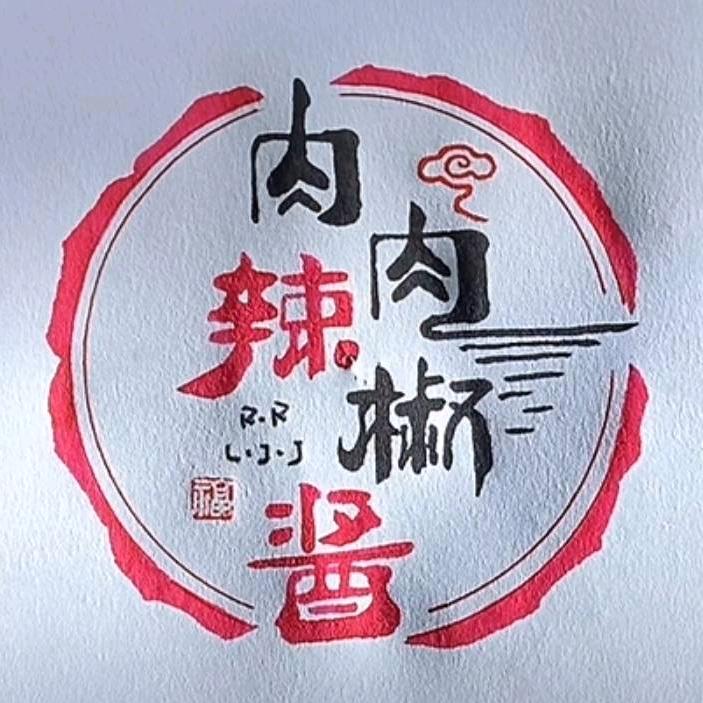 肉肉
辣椒
酱
R.R
L.J.J
福